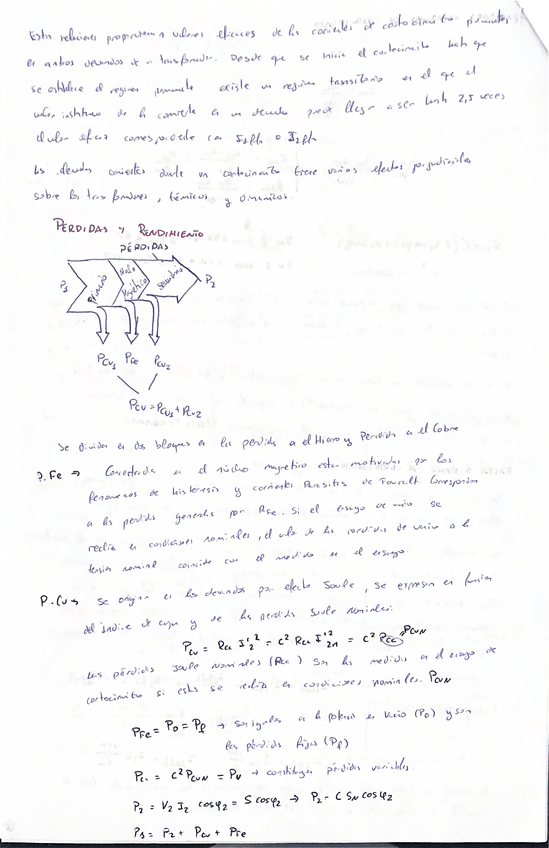 Estas relaciones proporcionan valores eficaces de las corrientes de cortocircuito permanentes
en ambos devanados de un transformador. Desde que se inicia el cortocircuito hasta que
se establece el regimen permanente existe un regimen transitorio en el que el
valor instantaneo de la corriente en un devanado puede llegar a ser hasta 2,5 veces
el valor eficaz correspondiente con
Las elevadas corrientes durante un cortocircuito tiene varios efectos perjudiciales
sobre los transformadores, térmicos y dinamicos.
PÉRDIDAS Y RENDIMIENTO
PÉRDIDAS
P1 Primario Nucleo Magnético Secundario P2
PCu1 PFe PCu2
PCu = PCu1 + PCu2
Se dividen en dos bloques en las perdidas en el Hierro y Perdidas en el Cobre
P.Fe → en el núcleo magnético estan motivadas por los
fenomenos de histeresis y corrientes Parasitas de Foucalt. Corresponden
a las perdidas generadas por RFe. Si el ensayo de vacio se
realiza en condiciones nominales, el valor de las perdidas de vacio a la
tension nominal coincide con el medido en el ensayo.
P.Cu → Se originan en los devanados por efecto Joule, se expresan en funcion
del índice de carga y de las perdidas Joule Nominales:
PCu = Rcc I'2² = C² Rcc I'2n² = C² Pcc PCuN
Las pérdidas Joule Nominales (Pcc) son las medidas en el ensayo de
cortocircuito si este se realiza en condiciones nominales. PCuN
PFe = P0 = Pf → Son iguales a la potencia en Vacio (P0) y son
las pérdidas fijas (Pf)
PCu = C² PCuN = PV → constituyen pérdidas variables.
P2 = V2 I2 cosφ2 = S cosφ2 → P2 = C SN cosφ2
P1 = P2 + PCu + PFe